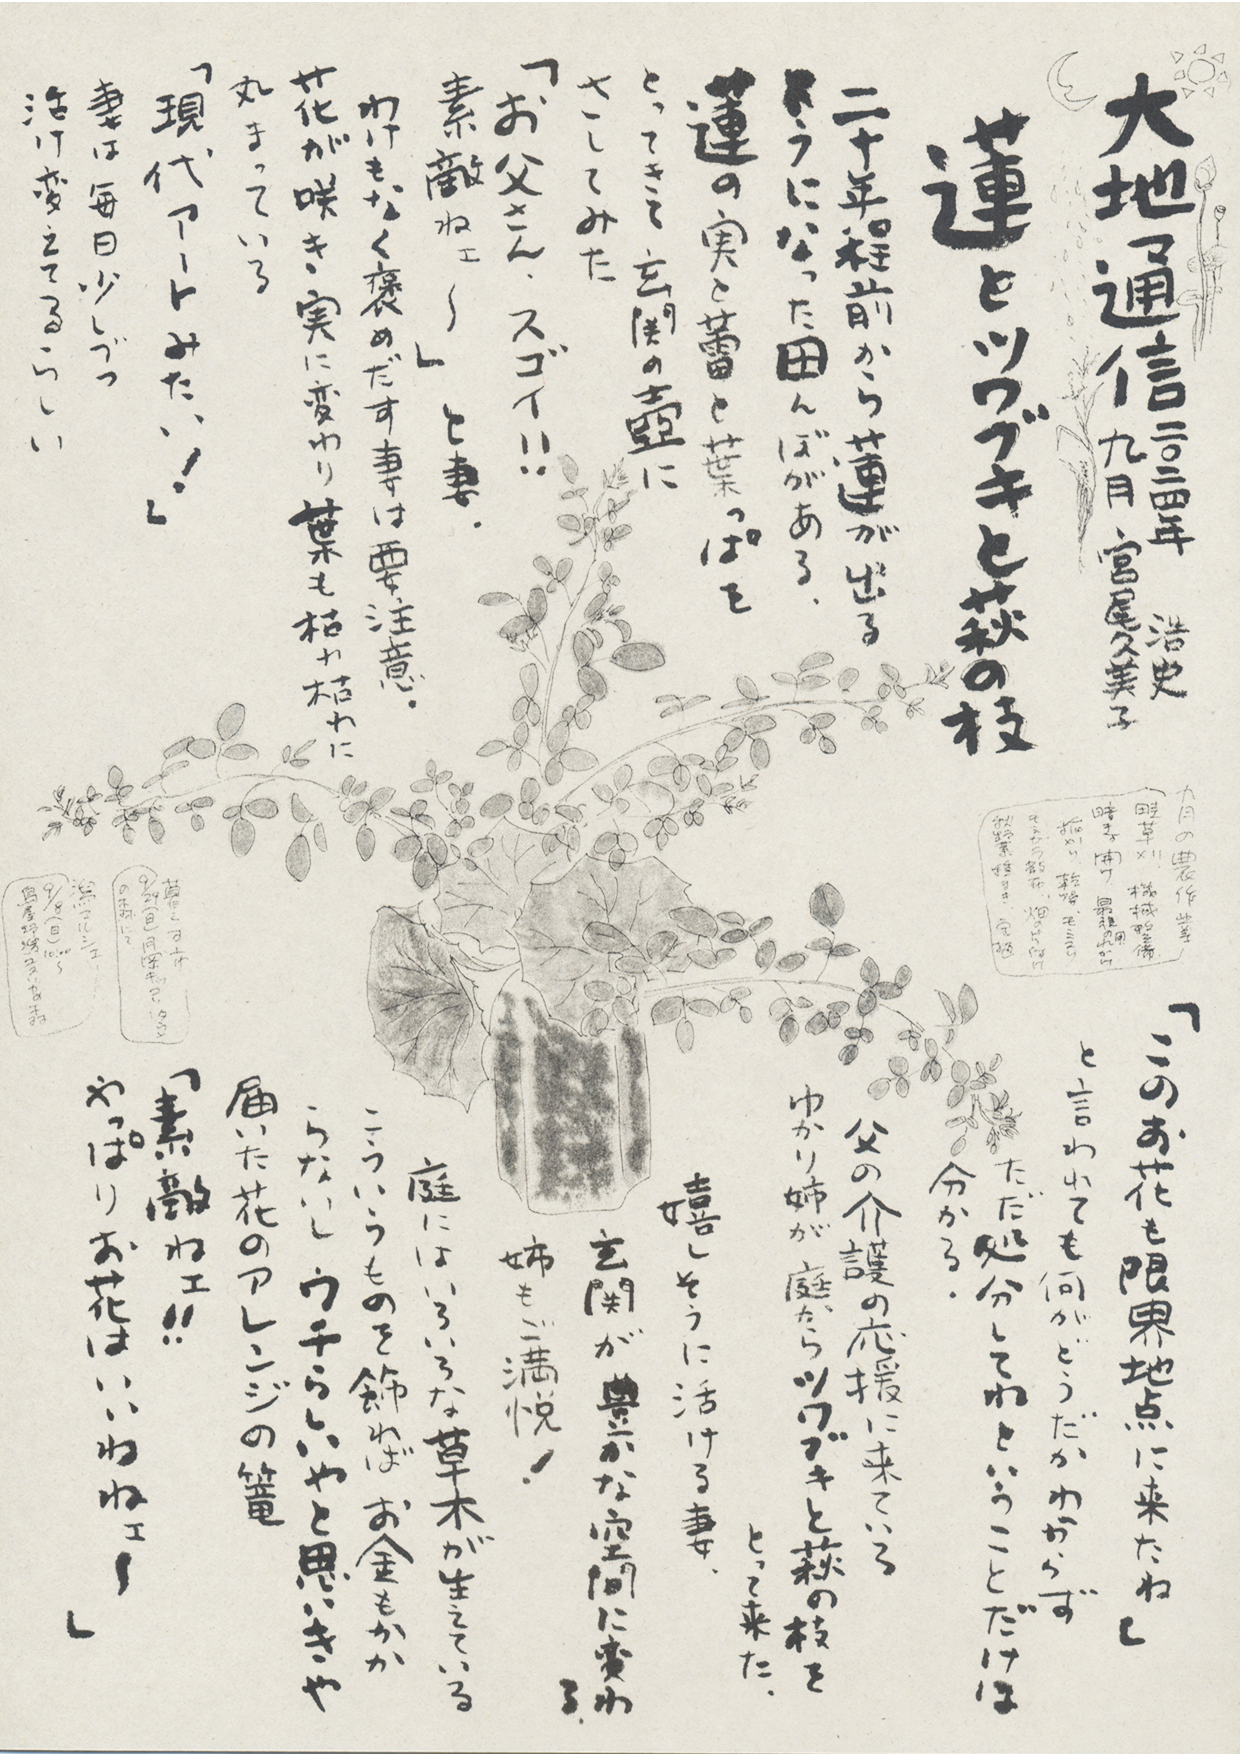 大地通信 二〇二四年 九月
浩史
宮尾久美子
蓮とツワブキと萩の枝
二十年程前から蓮が出る
ようになった田んぼがある、
蓮の実と蕾と葉っぱを
とってきて玄関の壺に
さしてみた
「お父さん、スゴイ!!
素敵ねェ〜」と妻、
わけもなく褒めだす妻は要注意。
花が咲き実に変わり葉も枯れ枯れに
丸まっている
「現代アートみたい!」
妻は毎日少しづつ
活け変えてるらしい
九月の農作業
畦草刈、機械整備
稲刈り、乾燥、モミスリ
「このお花も限界地点に来たね」
と言われても何がどうだかわからず
ただ処分してねということだけは
分かる。
父の介護の応援に来ている
ゆかり姉が庭からツワブキと萩の枝を
とって来た、
嬉しそうに活ける妻、
玄関が豊かな空間に変わ
る、
姉もご満悦!
庭にはいろいろな草木が生えている
こういうものを飾ればお金もかか
らないし ウチらしいやと思いきや
届いた花のアレンジの篭
「素敵ねェ!!
やっぱりお花はいいねねェー」
9/29(日)
9/8(日)